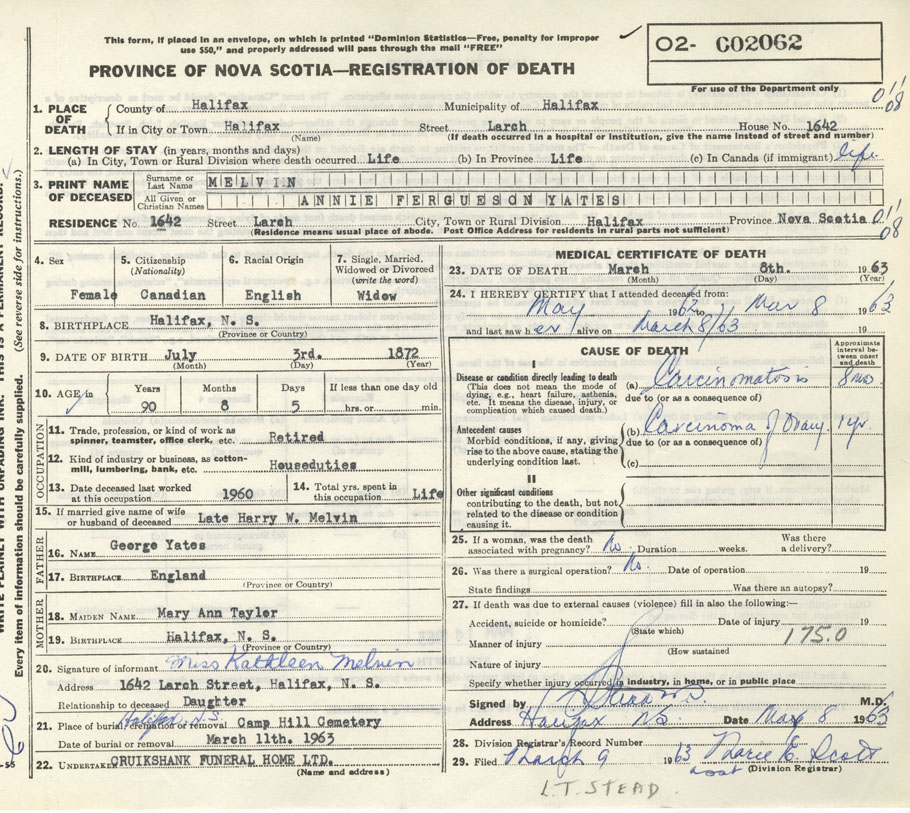 This form, if placed in an envelope, on which is printed "Dominion Statistics—Free, penalty for improper
use $50," and properly addressed will pass through the mail "FREE"
O2- C02062
For use of the Department only
PROVINCE OF NOVA SCOTIA—REGISTRATION OF DEATH
1. PLACE OF DEATH County of Halifax Municipality of Halifax
If in City or Town Halifax Street Larch House No. 1642
(Name) (If death occurred in a hospital or institution, give the name instead of street and number)
2. LENGTH OF STAY (in years, months and days)
(a) In City, Town or Rural Division where death occurred Life (b) In Province Life (c) In Canada (if immigrant) life
3. PRINT NAME OF DECEASED Surname or Last Name MELVIN
All Given or Christian Names ANNIE FERGUESON YATES
RESIDENCE No. 1642 Street Larch City, Town or Rural Division Halifax Province Nova Scotia
(Residence means usual place of abode. Post Office Address for residents in rural parts not sufficient)
4. Sex Female
5. Citizenship (Nationality) Canadian
6. Racial Origin English
7. Single, Married, Widowed or Divorced (write the word) Widow
8. BIRTHPLACE Halifax, N. S.
(Province or Country)
9. DATE OF BIRTH July 3rd. 1872
(Month) (Day) (Year)
10. AGE in Years Months Days If less than one day old
90 8 5 hrs. or min.
OCCUPATION
11. Trade, profession, or kind of work as spinner, teamster, office clerk, etc. Retired
12. Kind of industry or business, as cotton-mill, lumbering, bank, etc. Houseduties
13. Date deceased last worked at this occupation 1960
14. Total yrs. spent in this occupation Life
15. If married give name of wife or husband of deceased Late Harry W. Melvin
FATHER
16. NAME George Yates
17. BIRTHPLACE England
(Province or Country)
MOTHER
18. MAIDEN NAME Mary Ann Taylor
19. BIRTHPLACE Halifax, N. S.
(Province or Country)
20. Signature of informant Miss Kathleen Melvin
Address 1642 Larch Street, Halifax, N. S.
Relationship to deceased Daughter
Halifax N.S.
21. Place of burial, cremation or removal Camp Hill Cemetery
Date of burial or removal March 11th. 1963
22. UNDERTAKER CRUIKSHANK FUNERAL HOME LTD.
(Name and address)
MEDICAL CERTIFICATE OF DEATH
23. DATE OF DEATH March 8th. 1963
(Month) (Day) (Year)
24. I HEREBY CERTIFY that I attended deceased from:
May 1962 to Mar 8 1963
and last saw her alive on March 8/63 19
CAUSE OF DEATH
Approximate interval between onset and death
I
Disease or condition directly leading to death
(This does not mean the mode of dying, e.g., heart failure, asthenia, etc. It means the disease, injury, or complication which caused death.)
(a) Carcinomatosis 8 mos
due to (or as a consequence of)
Antecedent causes
Morbid conditions, if any, giving rise to the above cause, stating the underlying condition last.
(b) Carcinoma of Ovary 1 yr.
due to (or as a consequence of)
(c)
II
Other significant conditions
contributing to the death, but not related to the disease or condition causing it.
25. If a woman, was the death associated with pregnancy? No. Duration weeks. Was there a delivery?
26. Was there a surgical operation? No. Date of operation 19
State findings Was there an autopsy?
27. If death was due to external causes (violence) fill in also the following:—
Accident, suicide or homicide? Date of injury 19
(State which)
Manner of injury 175.0
(How sustained
Nature of injury
Specify whether injury occurred in industry, in home, or in public place
Signed by M.D.
Address Halifax N.S. Date Mar 8 1963
28. Division Registrar's Record Number
29. Filed March 9 1963 Marie E Scott
(Division Registrar)
L.T. STEAD
WRITE PLAINLY WITH UNFADING INK. THIS IS A PERMANENT RECORD.
Every item of information should be carefully supplied. (See reverse side for instructions.)